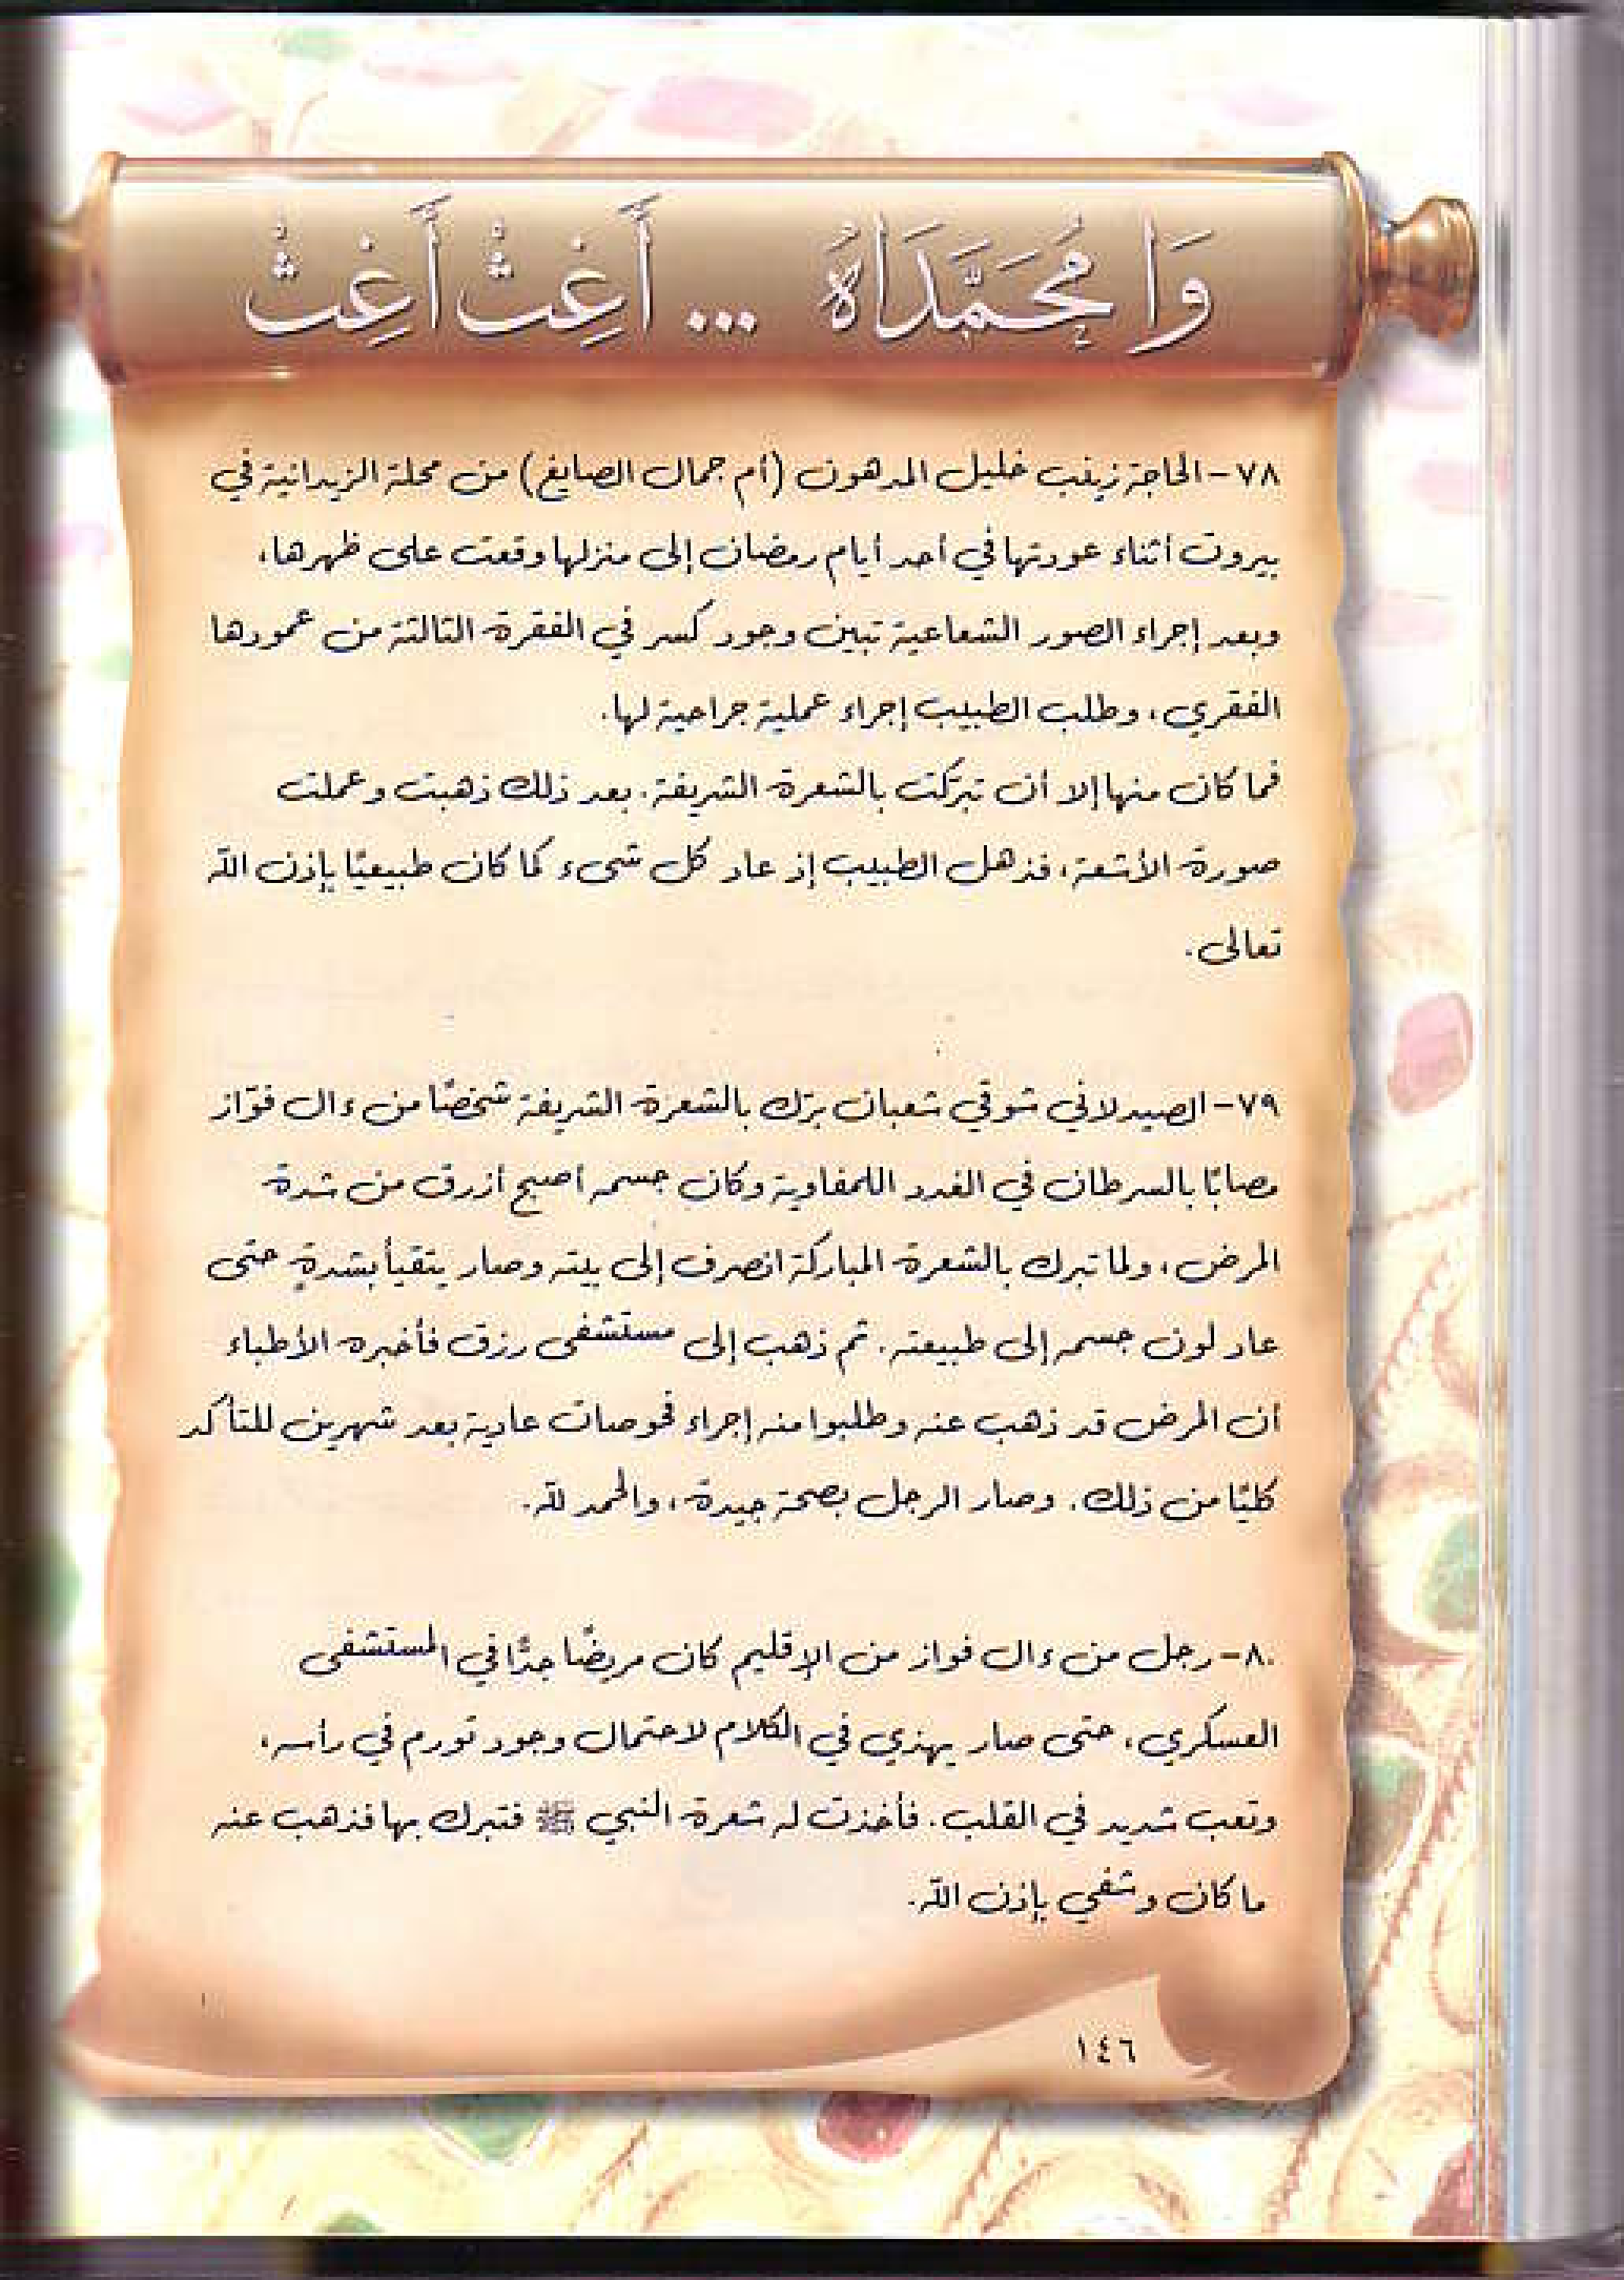 وَا مُحَمَّدَاهُ ... أَغِثْ أَغِثْ
٧٨- الحاجة زينب خليل المدهون (أم جمال الصايغ) من محلة الزيدانية في
بيروت أثناء عودتها في أحد أيام رمضان إلى منزلها وقعت على ظهرها،
وبعد إجراء الصور الشعاعية تبين وجود كسر في الفقرة الثالثة من عمودها
الفقري، وطلب الطبيب إجراء عملية جراحية لها.
فما كان منها إلا أن تبرّكت بالشعرة الشريفة. بعد ذلك ذهبت وعملت
صورة الأشعة، فذهل الطبيب إذ عاد كل شىء كما كان طبيعيًا بإذن الله
تعالى.
٧٩- الصيدلاني شوقي شعبان برّك بالشعرة الشريفة شخصًا من ءال فوّاز
مصابًا بالسرطان في الغدد اللمفاوية وكان جسمه أصبح أزرق من شدة
المرض، ولما تبرك بالشعرة المباركة انصرف إلى بيته وصار يتقيأ بشدةٍ حتى
عاد لون جسمه إلى طبيعته. ثم ذهب إلى مستشفى رزق فأخبره الأطباء
أن المرض قد ذهب عنه وطلبوا منه إجراء فحوصات عادية بعد شهرين للتأكد
كليًا من ذلك. وصار الرجل بصحة جيدة، والحمد لله.
٨٠- رجل من ءال فواز من الإقليم كان مريضًا جدًّا في المستشفى
العسكري، حتى صار يهذي في الكلام لاحتمال وجود تورم في رأسه،
وتعب شديد في القلب. فأخذت له شعرة النبي ﷺ فتبرك بها فذهب عنه
ما كان وشفي بإذن الله.
١٤٦